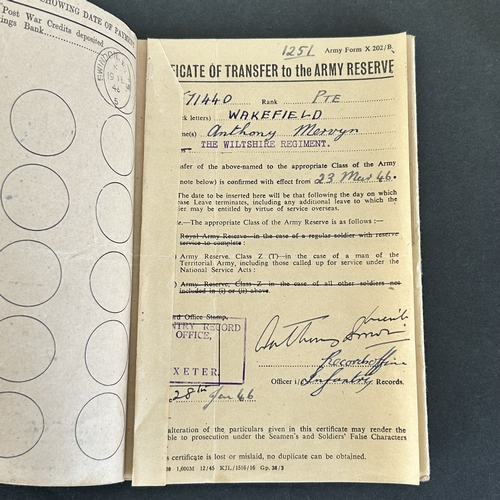 HOWING DATE OF PAYMENT
Post War Credits deposited
ings Bank
SWINDON
46
5
1251
Army Form X 202/B
FICATE OF TRANSFER to the ARMY RESERVE
71440 Rank PTE
ck letters) WAKEFIELD
me(s) Anthony Mervyn
THE WILTSHIRE REGIMENT.
nsfer of the above-named to the appropriate Class of the Army
note below) is confirmed with effect from 23 Mar 46.
The date to be inserted here will be that following the day on which
ease Leave terminates, including any additional leave to which the
ier may be entitled by virtue of service overseas.
te.—The appropriate Class of the Army Reserve is as follows :—
Royal Army Reserve—in the case of a regular soldier with reserve
service to complete :
) Army Reserve, Class Z (T)—in the case of a man of the
Territorial Army, including those called up for service under the
National Service Acts :
) Army Reserve, Class Z in the case of all other soldiers not
included in (i) or (ii) above.
ord Office Stamp.
NTRY RECORD
OFFICE,
XETER.
28th Jan 46
Records Office
Officer i/c Infantry Records.
alteration of the particulars given in this certificate may render the
ble to prosecution under the Seamen's and Soldiers' False Characters
s certificate is lost or mislaid, no duplicate can be obtained.
1,000M 12/45 KJL/1516/16 Gp. 38/3